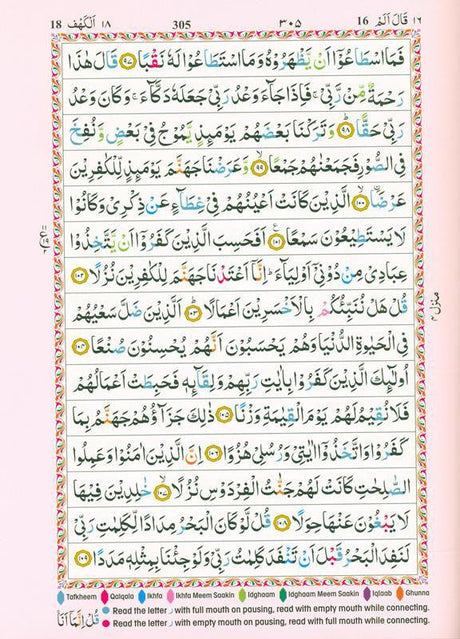 18 اَلْكَهْف ١٨ 305 ٣٠٥ 16 قَالَ اَلَمْ ١٦
فَمَا اسْطَاعُوْۤا اَنْ يَّظْهَرُوْهُ وَمَا اسْتَطَاعُوْا لَهٗ نَقْبًا ﴿٩٧﴾ قَالَ هٰذَا
رَحْمَةٌ مِّنْ رَّبِّيْ ۚ فَاِذَا جَآءَ وَعْدُ رَبِّيْ جَعَلَهٗ دَكَّآءَ ۚ وَكَانَ وَعْدُ
رَبِّيْ حَقًّا ﴿٩٨﴾ وَتَرَكْنَا بَعْضَهُمْ يَوْمَىِٕذٍ يَّمُوْجُ فِيْ بَعْضٍ وَّنُفِخَ
فِي الصُّوْرِ فَجَمَعْنٰهُمْ جَمْعًا ﴿٩٩﴾ وَّعَرَضْنَا جَهَنَّمَ يَوْمَىِٕذٍ لِّلْكٰفِرِيْنَ
عَرْضًا ﴿١٠٠﴾ الَّذِيْنَ كَانَتْ اَعْيُنُهُمْ فِيْ غِطَآءٍ عَنْ ذِكْرِيْ وَكَانُوْا
لَا يَسْتَطِيْعُوْنَ سَمْعًا ﴿١٠١﴾ اَفَحَسِبَ الَّذِيْنَ كَفَرُوْۤا اَنْ يَّتَّخِذُوْا
عِبَادِيْ مِنْ دُوْنِيْۤ اَوْلِيَآءَ ؕ اِنَّاۤ اَعْتَدْنَا جَهَنَّمَ لِلْكٰفِرِيْنَ نُزُلًا ﴿١٠٢﴾
قُلْ هَلْ نُنَبِّئُكُمْ بِالْاَخْسَرِيْنَ اَعْمَالًا ﴿١٠٣﴾ اَلَّذِيْنَ ضَلَّ سَعْيُهُمْ
فِي الْحَيٰوةِ الدُّنْيَا وَهُمْ يَحْسَبُوْنَ اَنَّهُمْ يُحْسِنُوْنَ صُنْعًا ﴿١٠٤﴾
اُولٰٓىِٕكَ الَّذِيْنَ كَفَرُوْا بِاٰيٰتِ رَبِّهِمْ وَلِقَآىِٕهٖ فَحَبِطَتْ اَعْمَالُهُمْ
فَلَا نُقِيْمُ لَهُمْ يَوْمَ الْقِيٰمَةِ وَزْنًا ﴿١٠٥﴾ ذٰلِكَ جَزَآؤُهُمْ جَهَنَّمُ بِمَا
كَفَرُوْا وَاتَّخَذُوْۤا اٰيٰتِيْ وَرُسُلِيْ هُزُوًا ﴿١٠٦﴾ اِنَّ الَّذِيْنَ اٰمَنُوْا وَعَمِلُوا
الصّٰلِحٰتِ كَانَتْ لَهُمْ جَنّٰتُ الْفِرْدَوْسِ نُزُلًا ﴿١٠٧﴾ خٰلِدِيْنَ فِيْهَا
لَا يَبْغُوْنَ عَنْهَا حِوَلًا ﴿١٠٨﴾ قُلْ لَّوْ كَانَ الْبَحْرُ مِدَادًا لِّكَلِمٰتِ رَبِّيْ
لَنَفِدَ الْبَحْرُ قَبْلَ اَنْ تَنْفَدَ كَلِمٰتُ رَبِّيْ وَلَوْ جِئْنَا بِمِثْلِهٖ مَدَدًا ﴿١٠٩﴾
منزل ٤
Tafkheem Qalqala Ikhfa Ikhfa Meem Saakin Idghaam Idghaam Meem Saakin Iqlaab Ghunna
Read the letter ر with full mouth on pausing, read with empty mouth while connecting.
Read the letter ر with empty mouth on pausing, read with full mouth while connecting.
قُلْ اِنَّمَاۤ اَنَا